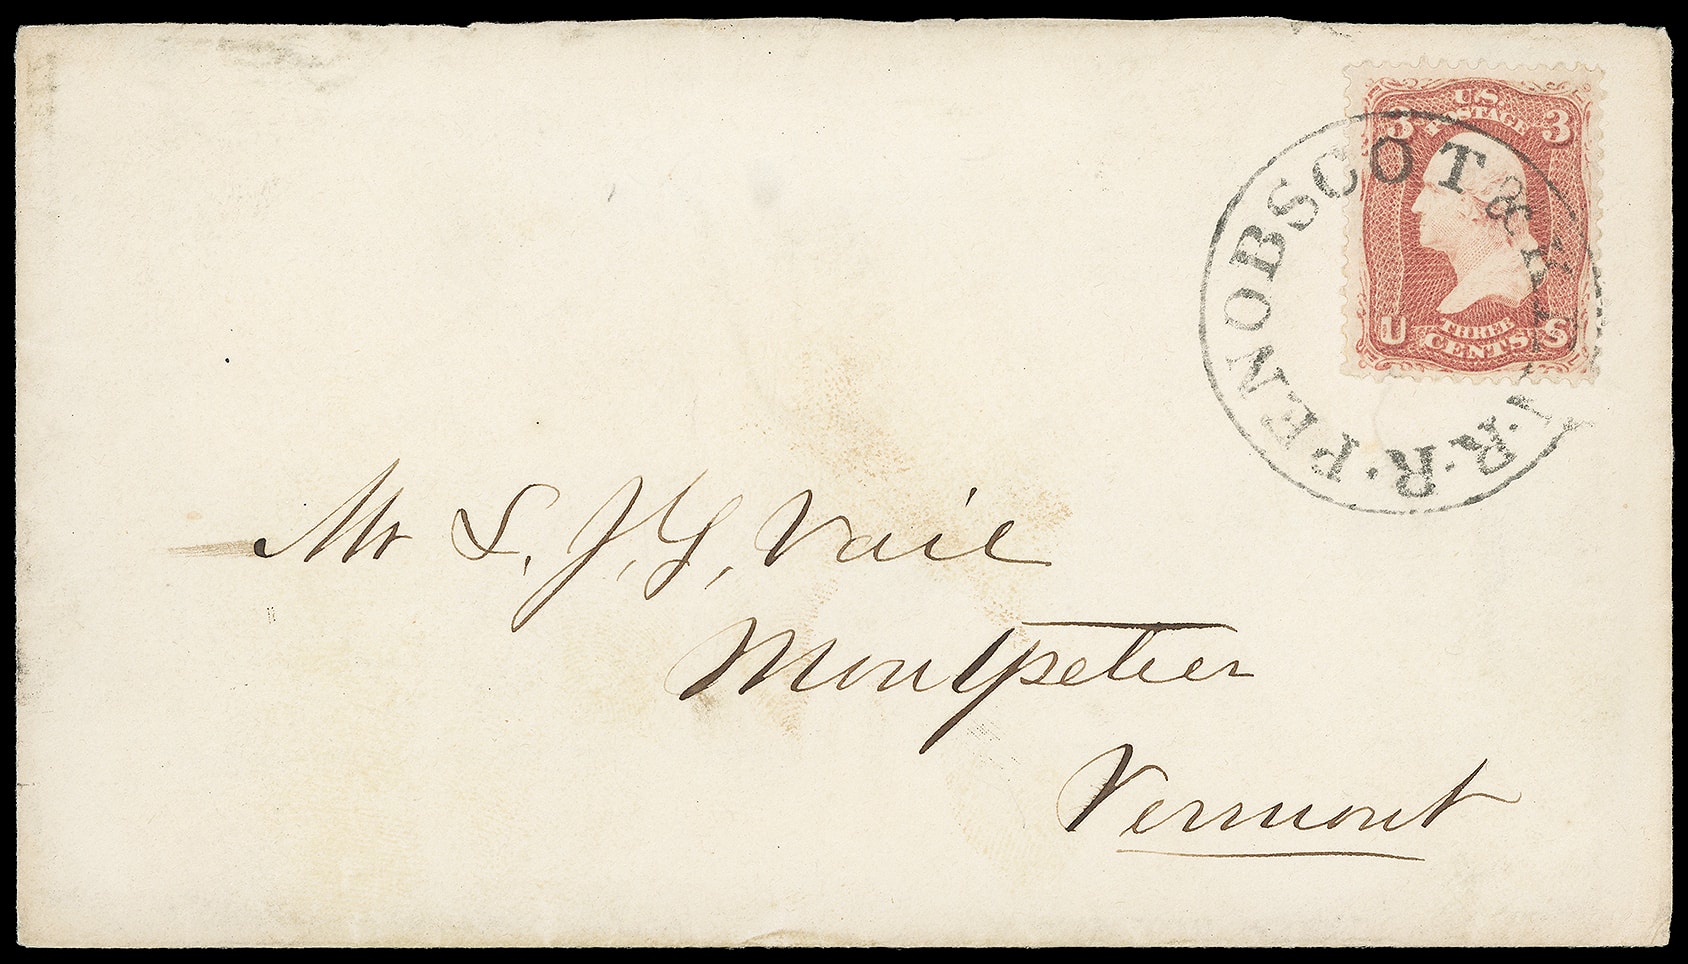 U.S.
POSTAGE
3 3
THREE
CENTS
U S
PENOBSCOT & K R.R.
Mr S. J. G. Vail
Montpelier
Vermont